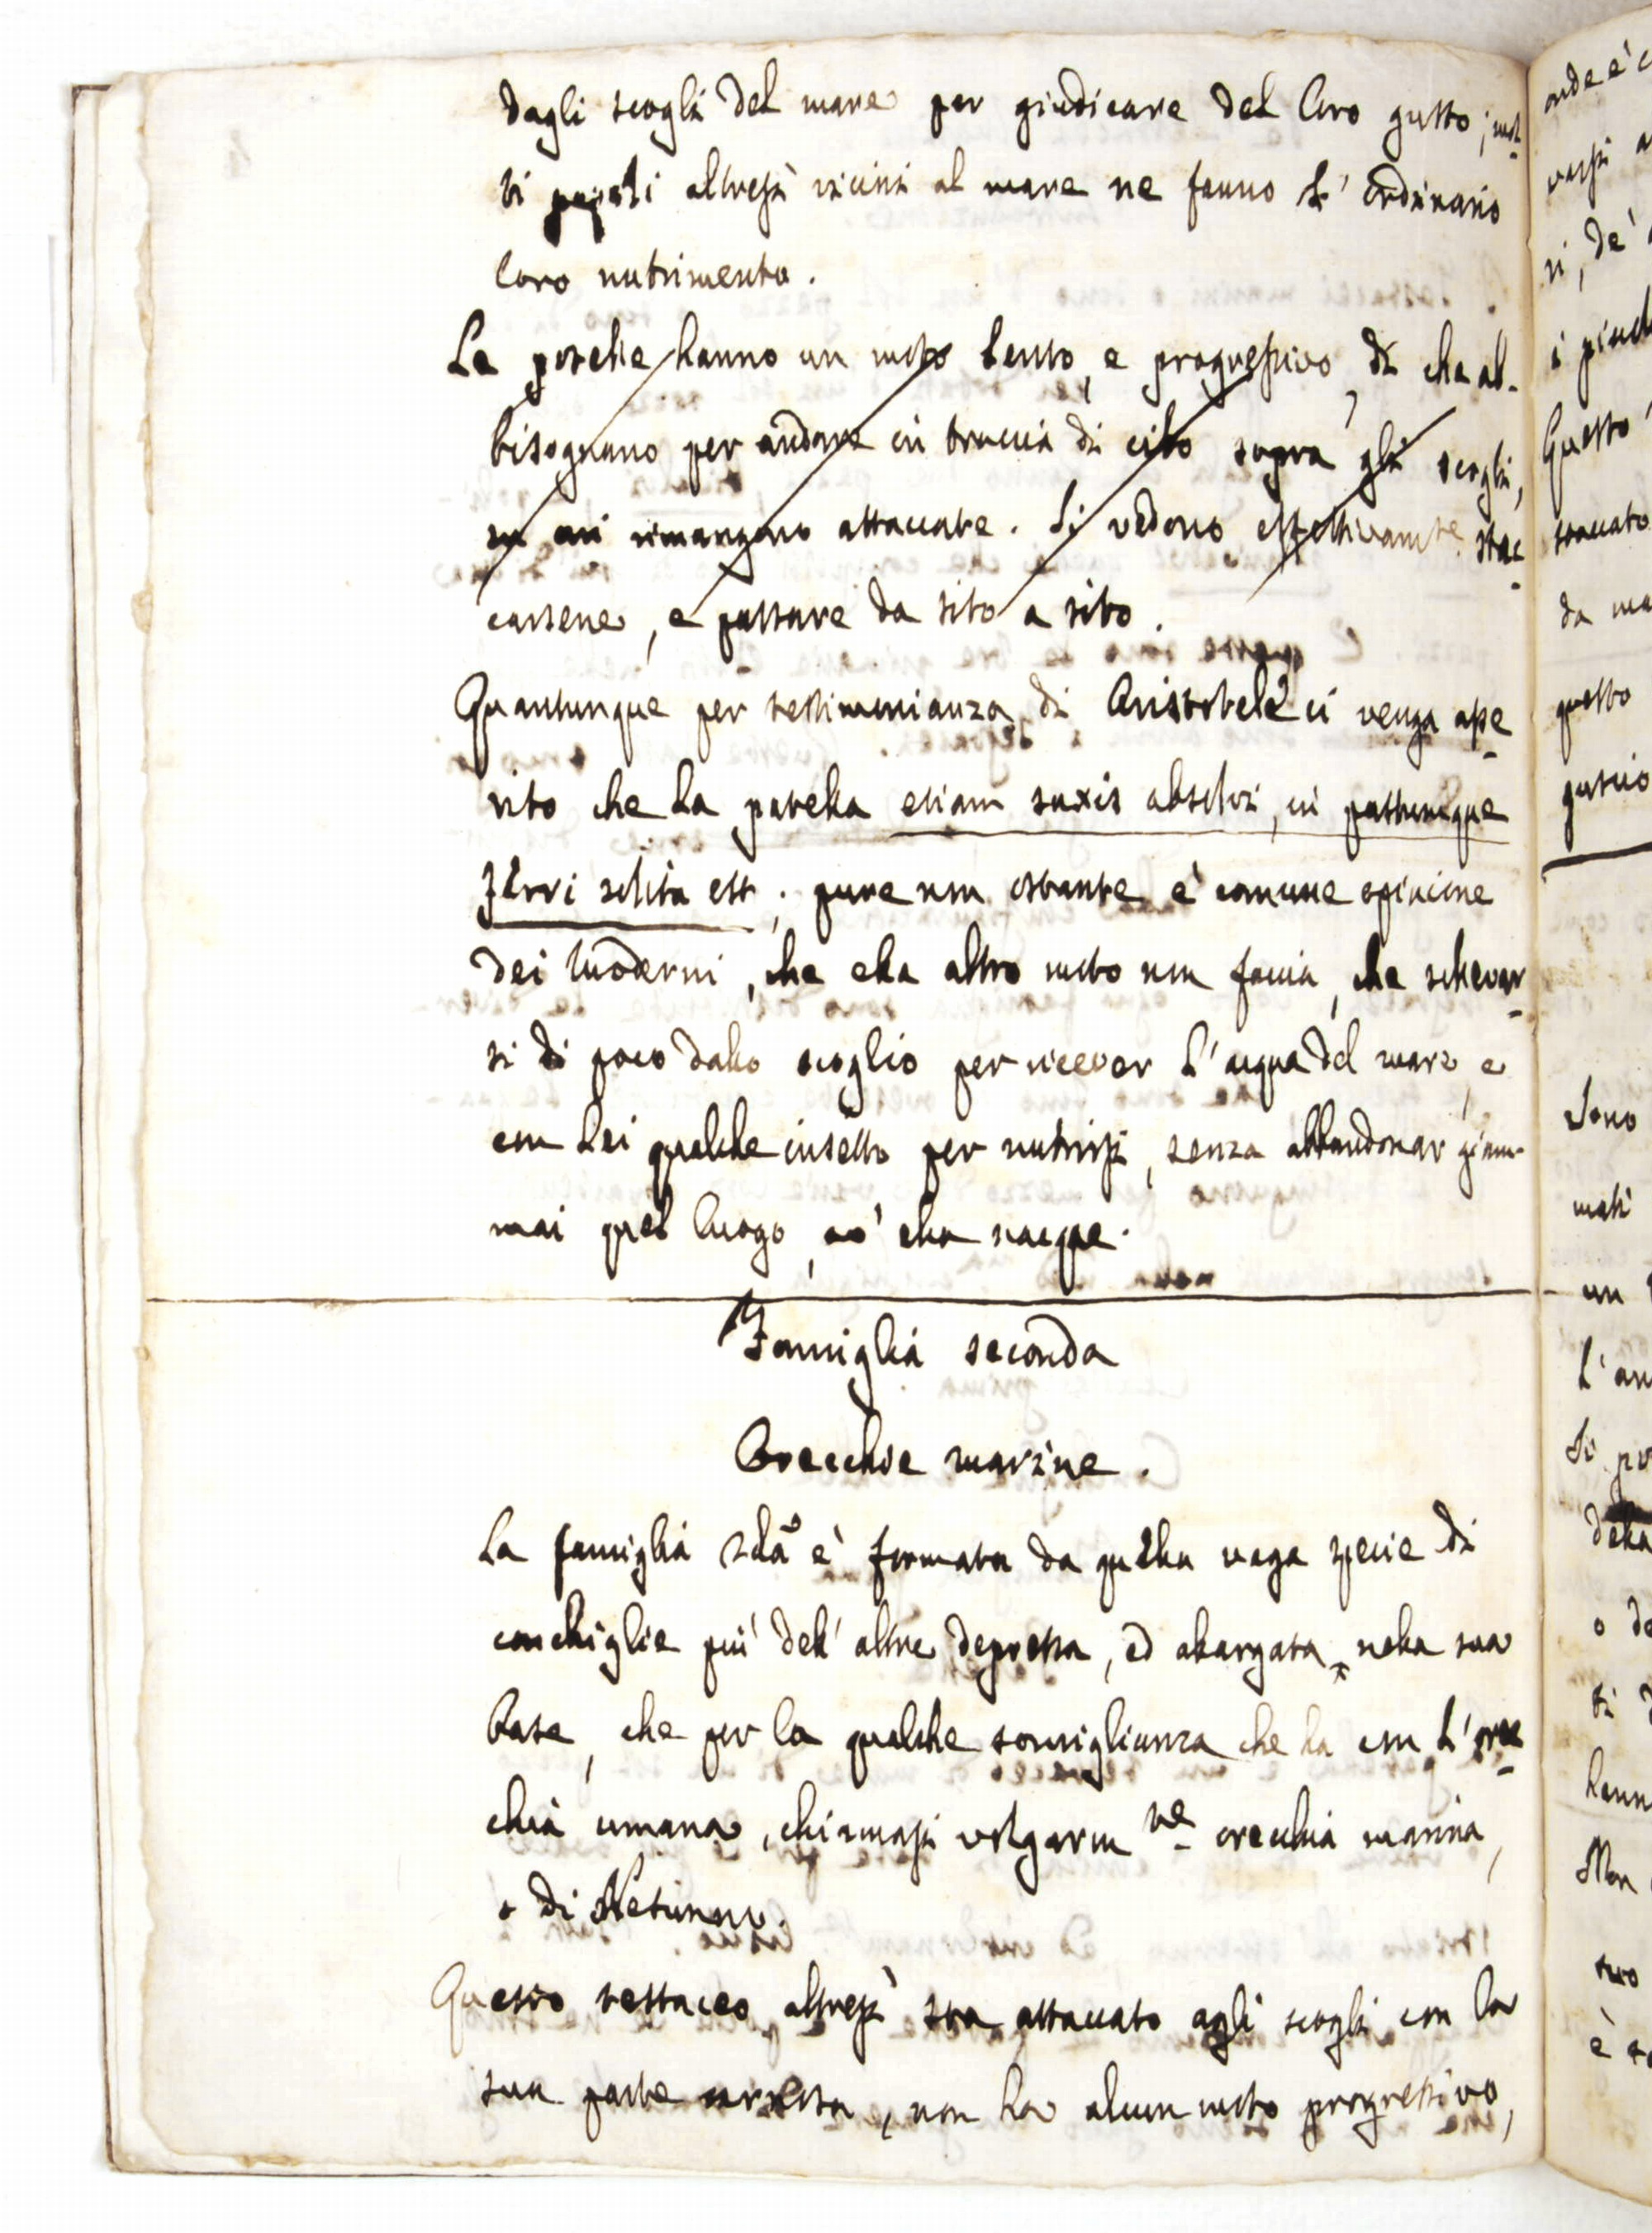 dagli scogli del mare per giudicare del loro gusto; mol-
ti popoli altresì vicini al mare ne fanno l' ordinario
loro nutrimento.
Le patelle hanno un moto lento, e progressivo, di che ab-
bisognano per andare in traccia di cibo sopra gli scogli,
in cui rimangono attaccate. Si vedono effettivamte stac-
carsene, e passare da sito a sito.
Quantunque per testimonianza di Aristotele ci venga asse-
rito che la patella etiam saxis absolvi, in pastumque
ferri solita est; pure non ostante è comune opinione
dei Moderni, che ella altro moto non faccia, che sollevar-
si di poco dallo scoglio per ricever l' acqua del mare, e
con lei qualche insetto per nutrirsi, senza abbandonar giam-
mai quel luogo, ov' ella nacque.
Famiglia seconda
Orecchie marine.
La famiglia 2da è formata da quella vaga specie di
conchiglie più dell' altre depressa, ed allargata nella sua
base, che per la qualche somiglianza che ha con l' orec-
chia umana, chiamasi volgarmte orecchia marina,
o di Netunno.
Questo testaceo altresì sta attaccato agli scogli con la
sua parte, non ha alcun moto progressivo,